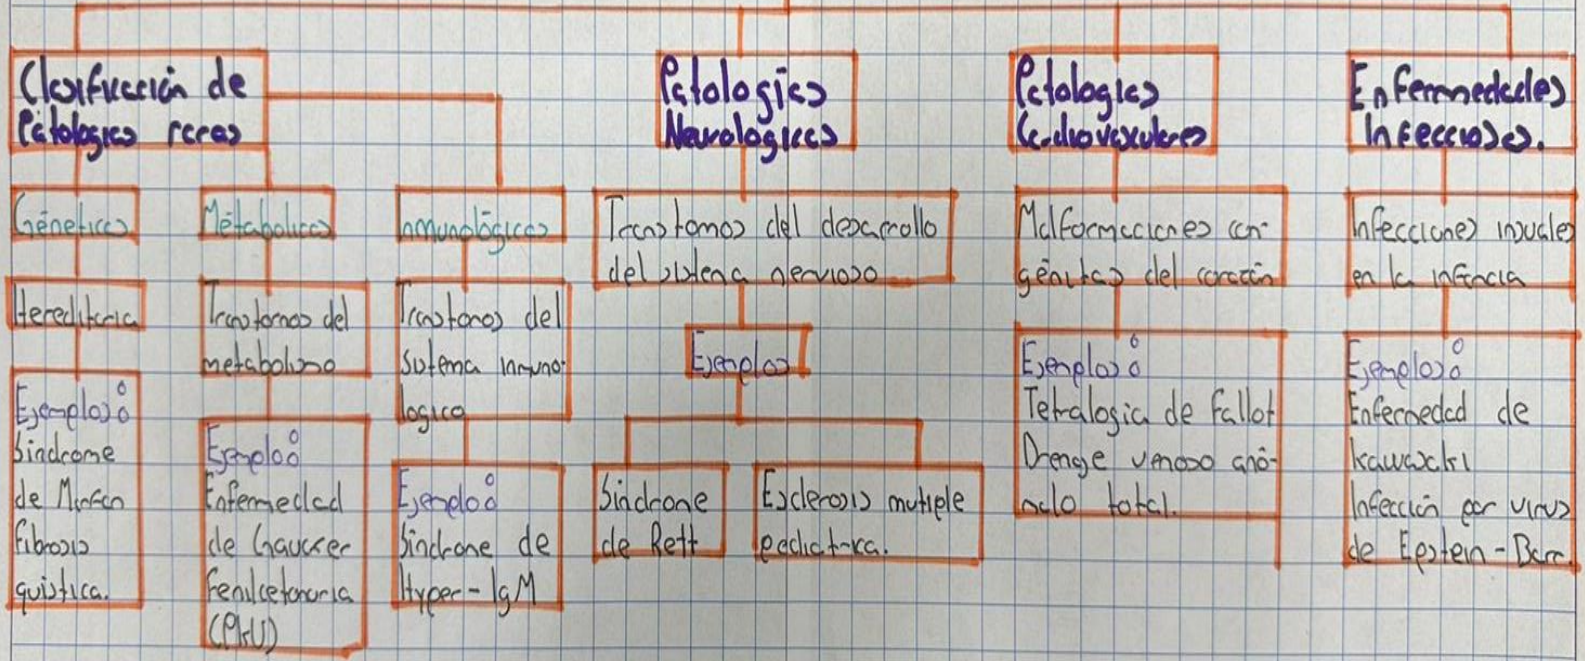 Clasificación de
Pátologias raras
Génetica
Hereditaria
Ejemplo:
Sindrome
de Marfan
Fibrosis
quistica.
Métabolicas
Transtornos del
metabolismo
Ejemplo:
Enfermedad
de Gaucher
Fenilcetonuria
(PKU)
Inmunológicas
Transtonos del
sistema inmuno-
logico
Ejemplo:
Sindrone de
Hyper-IgM
Patologias
Neurologicas
Transtornos del desarrollo
del sistena nervioso
Ejemplos
Sindrone
de Rett
Esclerosis mutiple
pediatrica.
Patologias
Cardiovasculares
Malformaciones con-
génitas del corazón
Ejemplos:
Tetralogia de Fallot
Drenge venoso anó-
malo total.
Enfermedades
Infecciosas.
Infecciones inusuales
en la infancia
Ejemplos:
Enfermedad de
kawasaki
Infección por virus
de Epstein-Barr.